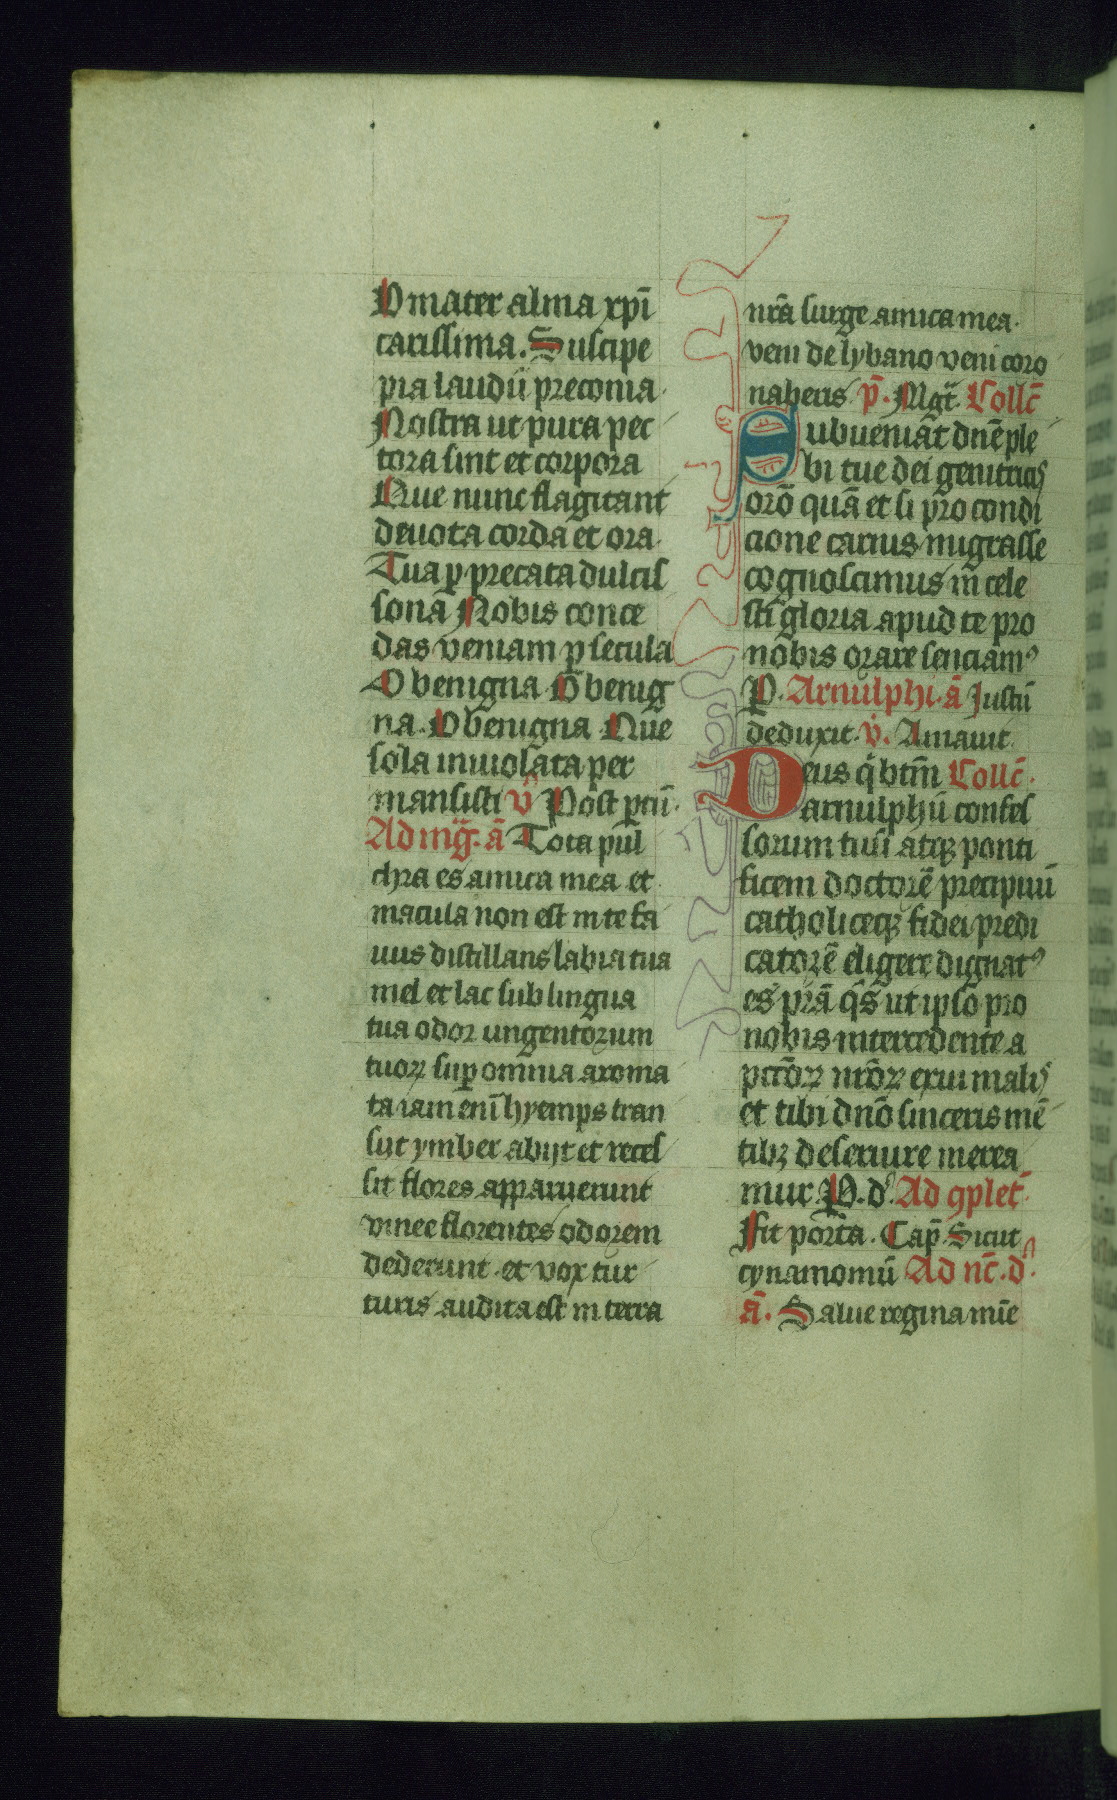 O mater alma xp̄i
carissima. Suscipe
pia laudū preconia.
Nostra ut pura pec
tora sint et corpora
Que nunc flagitant
deuota corda et ora.
Tua ꝑ precata dulcis
sona Nobis conce
das veniam ꝑ secula
O benigna O benig
na. O benigna Que
sola inuiolata per
mansisti ꝟ Post ꝑtū.
Ad mg̅. ā Tota pul
chra es amica mea et
macula non est in te fa
uus distillans labia tua
mel et lac sub lingua
tua odor ungentorum
tuoꝝ suꝑ omnia aroma
ta iam eni̅ hyemps tran
sijt ymber abijt et reces
sit flores apparuerunt
vinee florentes odorem
dederunt et vox tur
turis audita est in terra
nr̄a surge amica mea.
veni de lybano veni coro
naberis. p̄. Mgt̄. Collc̄
Subueniāt dnē ple
bi tue dei genitricꝭ
orō quā et si pro condi
cione carnis migrasse
cognoscimus in cele
sti gloria apud te pro
nobis orare senciamꝰ
P. Arnulphi. ā Justū
deduxit. ꝟ. Amauit.
Deus q̇ btm̄ Collc̄.
arnulphū confes
sorum tuū atqꝫ ponti
ficem doctorē precipuū
catholiceqꝫ fidei predi
catorē eligere dignatꝰ
es pr̄a q̄s ut ipso pro
nobis intercedente a
pctōꝝ nrōꝝ exui malꝭ
et tibi dnō sinceris mē
tibꝫ deseruire merea
mur. P. d. Ad ꝯplet̄
Fit porta. Cap̄. Sicut
cynamomū Ad nc̄. d.
ā. Salue regina mi̅e